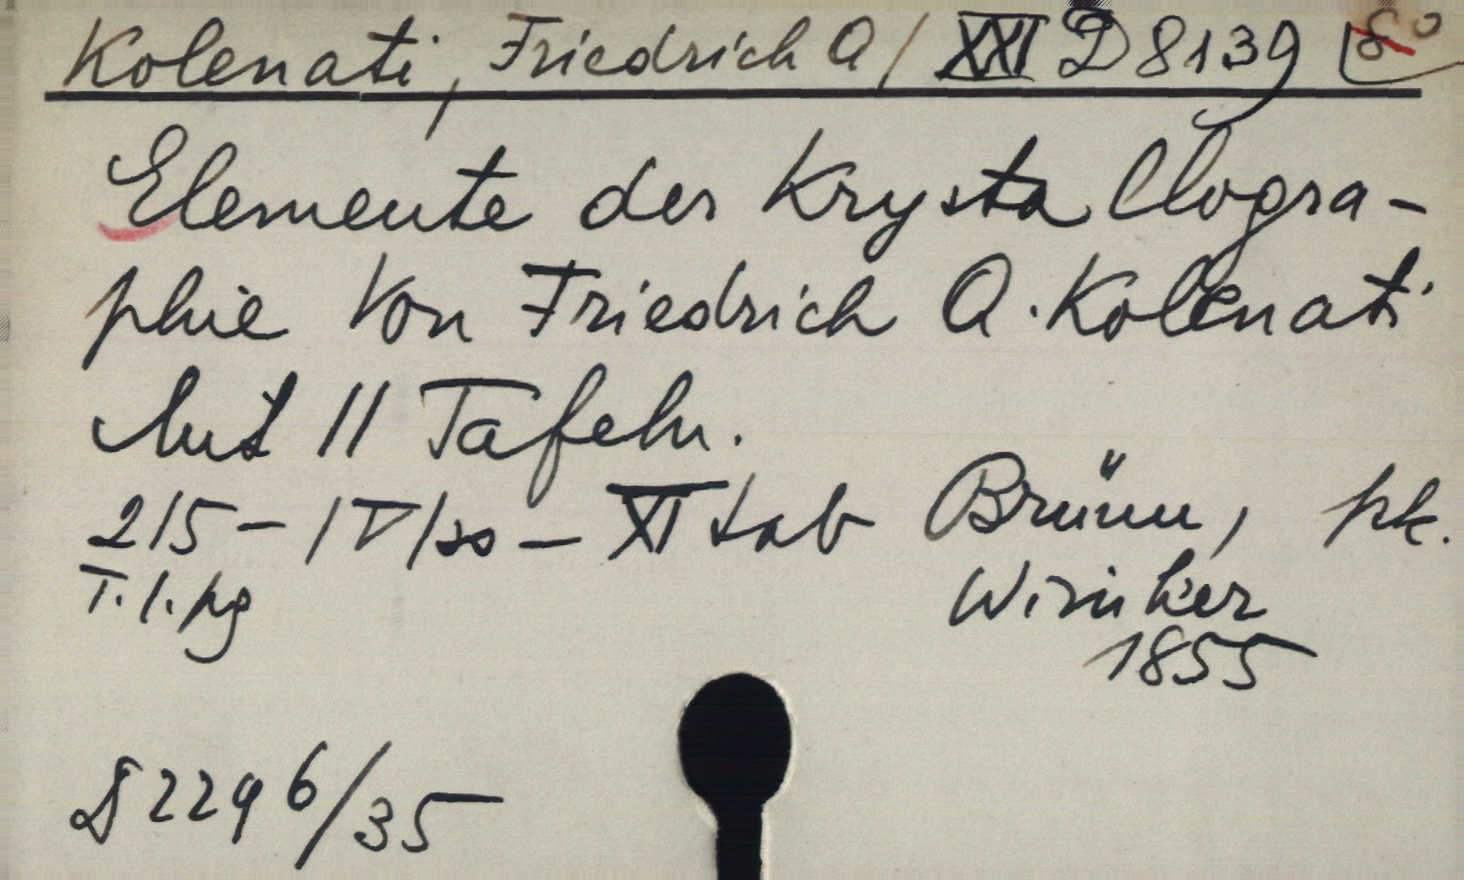 Kolenati, Friedrich A / XXI D 8139 8°
Elemente der Krystallogra-
phie Von Friedrich A. Kolenati
Mit 11 Tafeln.
215 - IV/ss - XI tab Brünn, pk.
T. 1. pg Winiker
1855
2296/35